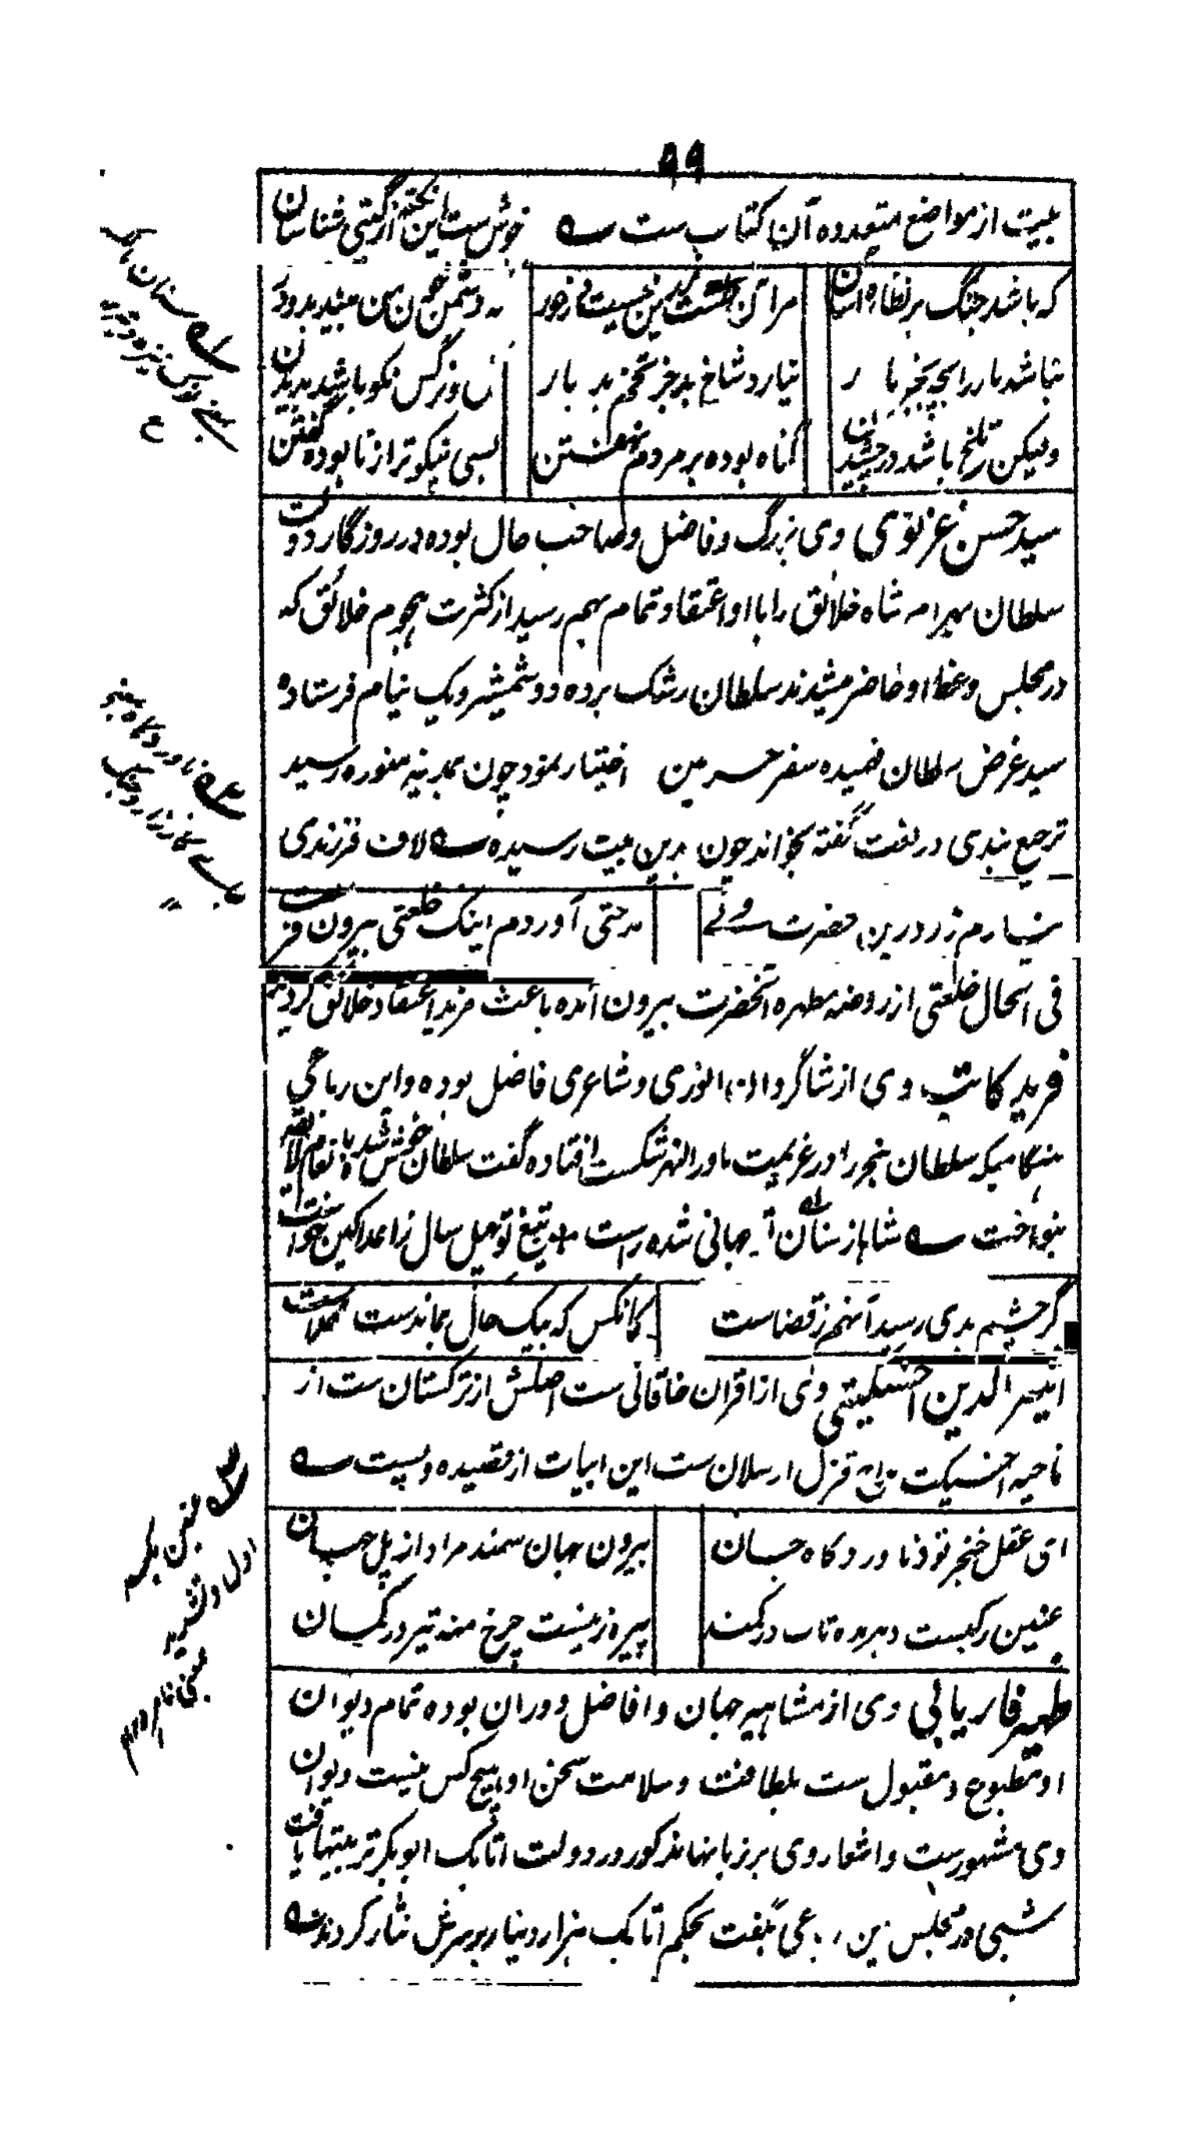 ۹۹
بیت از مواضع متعدده آن کتاب ست ے خوش ست این نکته از گیتی شناسان
که باشد جنگ بر نظاره آسان مرا آن طشت زرین نیست در خور که دشمن خون من بیند بدو در
نباشد مار را بچه بجز مار نیارد شاخ بد جز تخم بد بار نرگس نکو باشد بدیدن
ولیکن تلخ باشد در چشیدن گناه بوده بر مردم نهفتن بسی نیکوتر از نابوده گفتن
سید حسن غزنوی وی بزرگ و فاضل و صاحب حال بوده در روزگار دولت
سلطان بهرام شاه خلائق را با او اعتقاد تمام بهم رسید از کثرت هجوم خلائق که
در مجلس وعظ او حاضر میشدند سلطان رشک برده دو شمشیر و یک نیام فرستاده
سید غرض سلطان فهمیده سفر حرمین اختیار نمود چون بمدینه منوره رسید
ترجیع بندی در نعت گفته بخواند چون بدین بیت رسیده ے لاف فرزندی
نیارم زد درین حضرت ولے مدحتی آوردم اینک خلعتی بیرون فرست
فی الحال خلعتی از روضه مطهره آنحضرت بیرون آمده باعث مزید اعتقاد خلائق گردید
فرید کاتب وی از شاگردان انوری و شاعری فاضل بوده و این رباعی
هنگامیکه سلطان سنجر را در غزیمت ماوراالنهر شکست افتاده گفت سلطان خوش شده بانعام لایقه
بنواخت ے شاها ز سنان تو جهانی شده راست * تیغ تو چهل سال ز اعدا کین خواست
گر چشم بدی رسید آنهم ز قضاست کانکس که بیک حال بماندست خداست
اثیر الدین اخسیکتی وی از اقران خاقانی ست اصلش از ترکستان ست از
ناحیه اخسیکت مداح قزل ارسلان ست این ابیات از قصیده ویست ے
ای عقل خنجر تو ذناوردگاه جان بیرون جهان سمند مراد از پل جهان
چنین رکیست دهر مده تاب در کمند پیره زنیست چرخ منه تیر در کمان
ظهیر فاریابی وی از مشاهیر جهان و افاضل دوران بوده تمام دیوان
او مطبوع و مقبول ست بلطافت و سلامت سخن او هیچ کس نیست دیوان
وی مشهورست و اشعار وی بر زبانها مذکور در دولت اتابک ابوبکر تربیتها یافت
شبی در مجلس این رباعی بگفت بحکم اتابک هزار دینار بر سرش نثار کردند ے